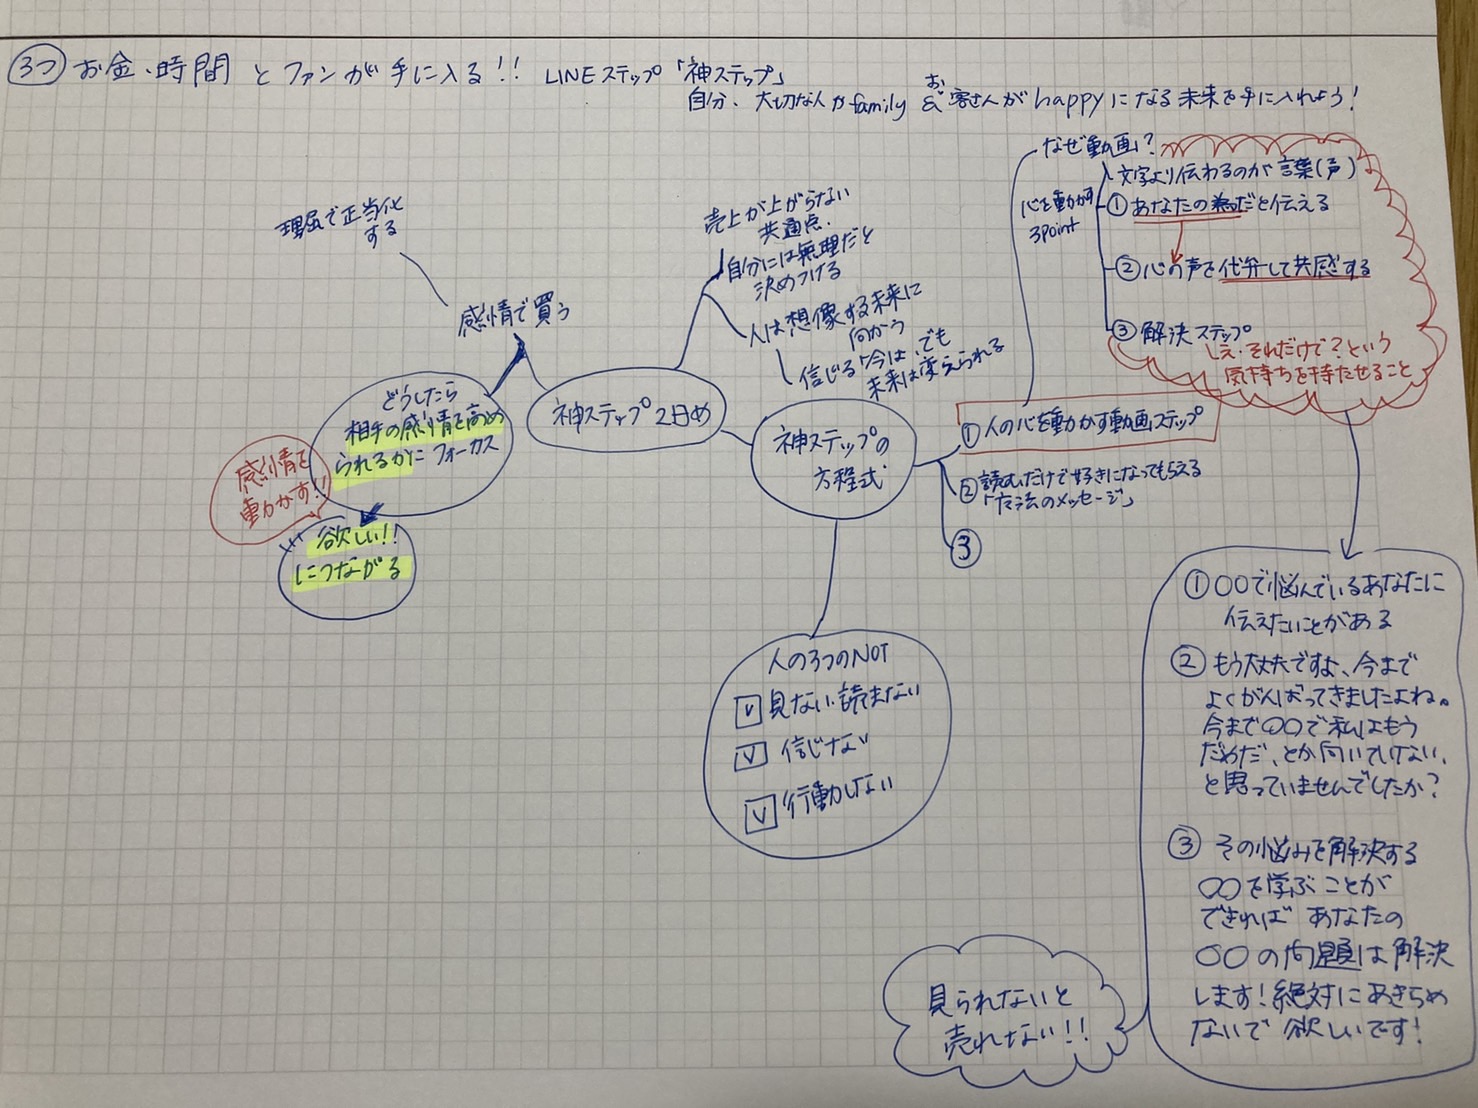 3つ お金、時間 とファンが手に入る!! LINEステップ「神ステップ」
自分、大切な人やfamily & お客さんがhappyになる未来を手に入れよう!
なぜ動画?
文字より伝わるのが言葉(声)
心を動かす
3point
①あなたの為だと伝える
②心の声を代弁して共感する
③解決ステップ
え、それだけで?という
気持ちを持たせること
理屈で正当化
する
感情で買う
どうしたら
相手の感情を高め
られるかに フォーカス
感情を
動かす!!
欲しい!!
につながる
神ステップ2日め
売上が上がらない
共通点.
自分には無理だと
決めつける
人は想像する未来に
向かう
信じる「今は、でも
未来は変えられる
神ステップの
方程式
①人の心を動かす動画ステップ
②読むだけで好きになってもらえる
「方法のメッセージ」
③
人の3つのNOT
見ない、読まない
信じない
行動しない
①○○で悩んでいるあなたに
伝えたいことがある
②もう大丈夫ですよ、今まで
よくがんばってきましたよね。
今まで○○で私はもう
だめだ、とか向いていけない、
と思っていませんでしたか?
③ その悩みを解決する
○○を学ぶことが
できれば あなたの
○○の問題は解決
します!絶対にあきらめ
ないで 欲しいです!
見られないと
売れない!!